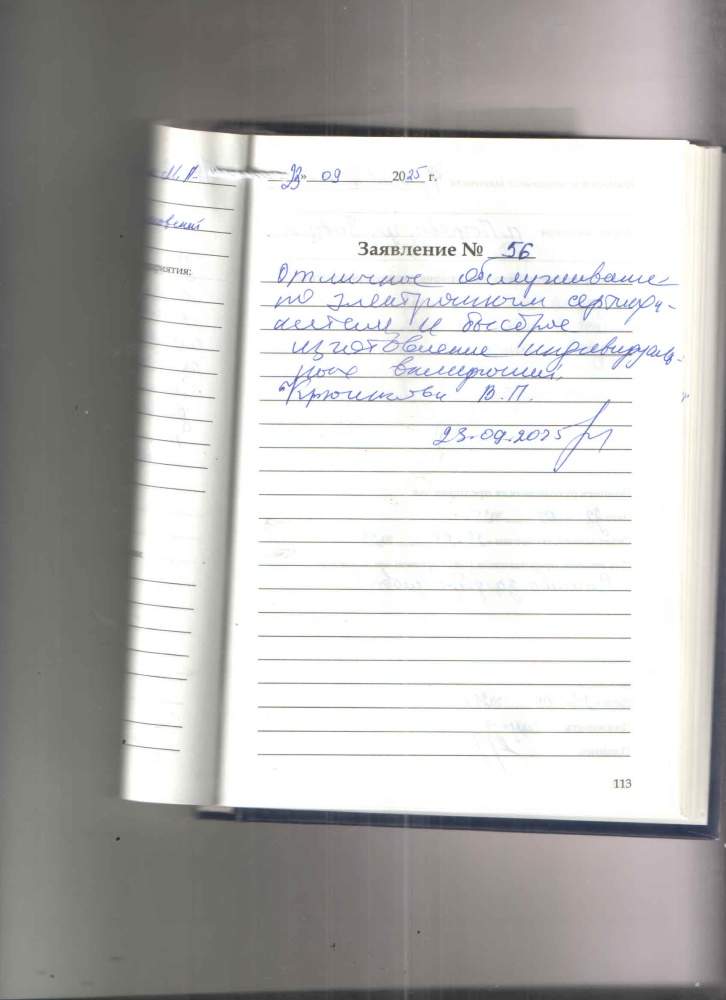 М. П.
ковский
риятия:
«23» 09 2025 г.
Заявление № 56
Отличное обслуживание
по электронным сертифи-
катам и быстрое
изготовление индивидуаль-
ных вкладышей.
В. П.
23.09.2025
113